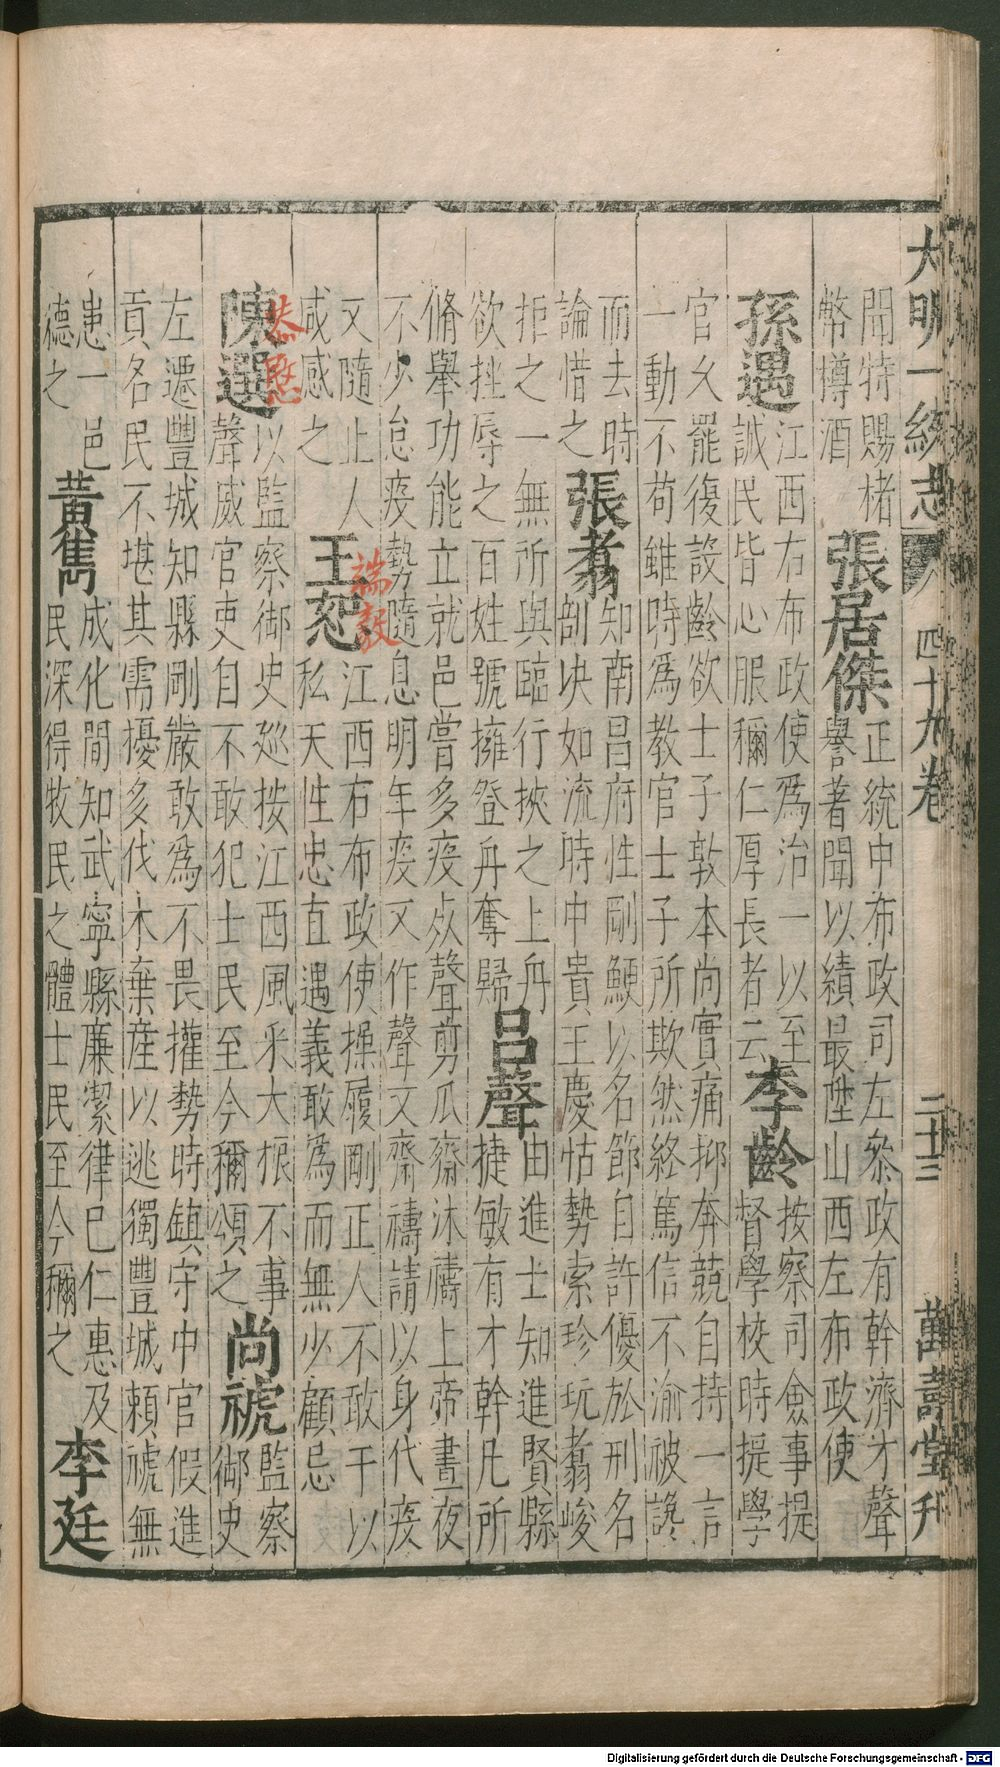 大明一統志 四十九卷 二十三 萬壽堂刊
聞特賜楮
幣樽酒
張居傑
正統中布政司左叅政有幹濟才聲
譽著聞以績最陞山西左布政使
孫遇
江西右布政使為治一以至
誠民皆心服稱仁厚長者云
李齡
按察司僉事提
督學校時提學
官久罷復設齡欲士子敦本尚實痛抑奔競自持一言
一動不苟雖時為教官士子所欺然終篤信不渝被讒
而去時
論惜之
張翥
知南昌府性剛鯁以名節自許優於刑名
剖决如流時中貴王慶怙勢索珍玩翥峻
拒之一無所與臨行挾之上舟
欲挫辱之百姓號擁登舟奪歸
呂聲
由進士知進賢縣
捷敏有才幹凡所
脩舉功能立就邑嘗多疫㸃聲剪瓜齋沐禱上帝晝夜
不少怠疫勢隨息明年疫又作聲又齋禱請以身代疫
又隨止人
咸感之
王恕
端毅
江西右布政使操履剛正人不敢干以
私天性忠直遇義敢為而無少顧忌
陳選
恭愍
以監察御史廵按江西風采大振不事
聲威官吏自不敢犯士民至今稱頌之
尚褫
監察
御史
左遷豐城知縣剛嚴敢為不畏權勢時鎮守中官假進
貢名民不堪其需擾多伐木棄產以逃獨豐城賴褫無
患一邑
德之
黃雋
成化間知武寧縣廉潔律已仁惠及
民深得牧民之體士民至今稱之
李廷
Digitalisierung gefördert durch die Deutsche Forschungsgemeinschaft - DFG